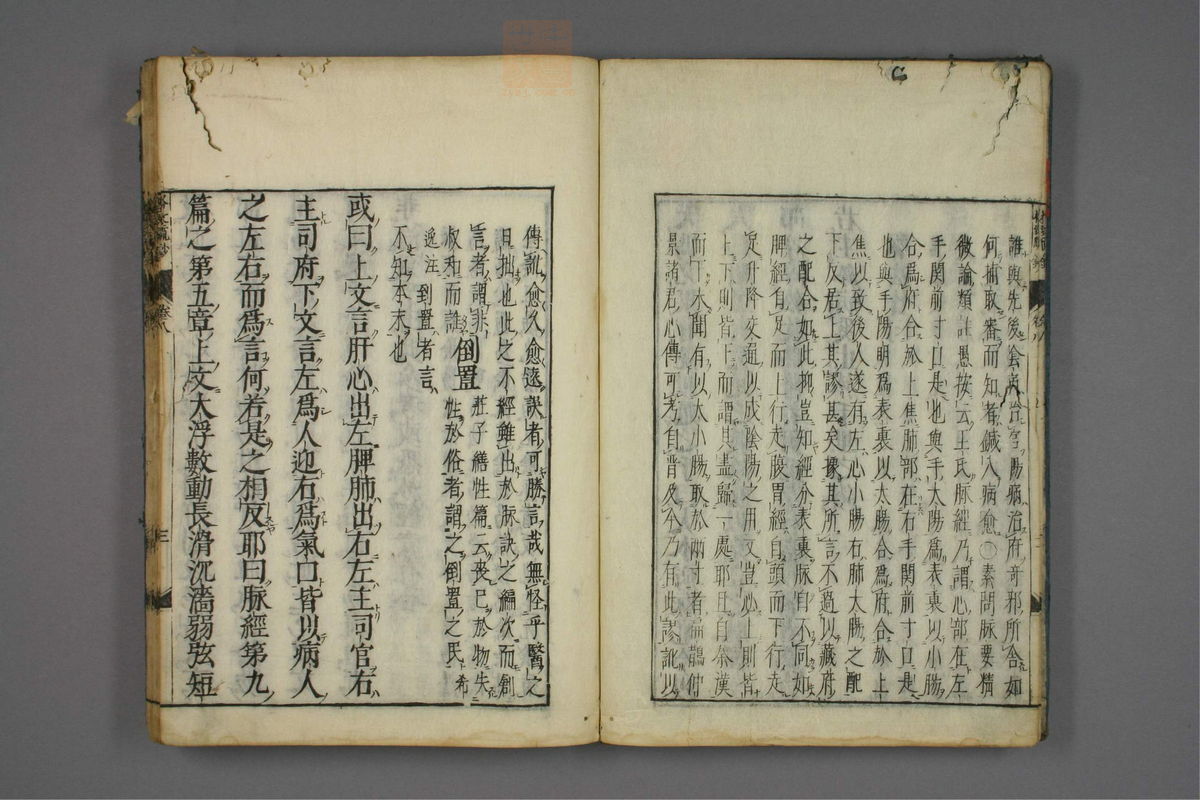 誰與先後会　　　陽病治府奇邪所合如
何捕取審而知者鍼入病愈〇素問脉要精
微論類註愚按云王氏脉經乃謂心部在左
手関前寸口是也與手太陽爲表裏以小腸
合爲府合於上焦肺部在右手関前寸口是
也與手陽明爲表裏以大腸合爲府合於上
焦以致後人遂有左心小腸右肺大腸之配
下反居上其謬甚矣據其所言不過以藏府
之配合如此抑豈知經分表裏脉自不同如
脾經自足而上行走腹胃經自頭而下行走
足升降交通以成陰陽之用又豈必上則皆
上下則皆上而謂其盡歸一處耶且自秦漢
而下未聞有以大小腸取於兩寸者扁鵲仲
景諸君心傳可考自晋及今乃有此謬訛以
傳訛愈久愈遠誤者可勝言哉無怪乎醫之
日拙也此之不經雖出於脉訣之編次而創
言者謂非
叔和而誰倒置莊子繕性篇云喪己於物失
性於俗者謂之倒置之民希
逸注　到置者言
不知本末也
或曰上文言肝心出左脾肺出右左主司官右
主司府下文言左爲人迎右爲氣口皆以病人
之左右而爲言何若是之相反耶曰脉經第九
篇之第五章上文大浮數動長滑沉濇弱弦短
卷八
三